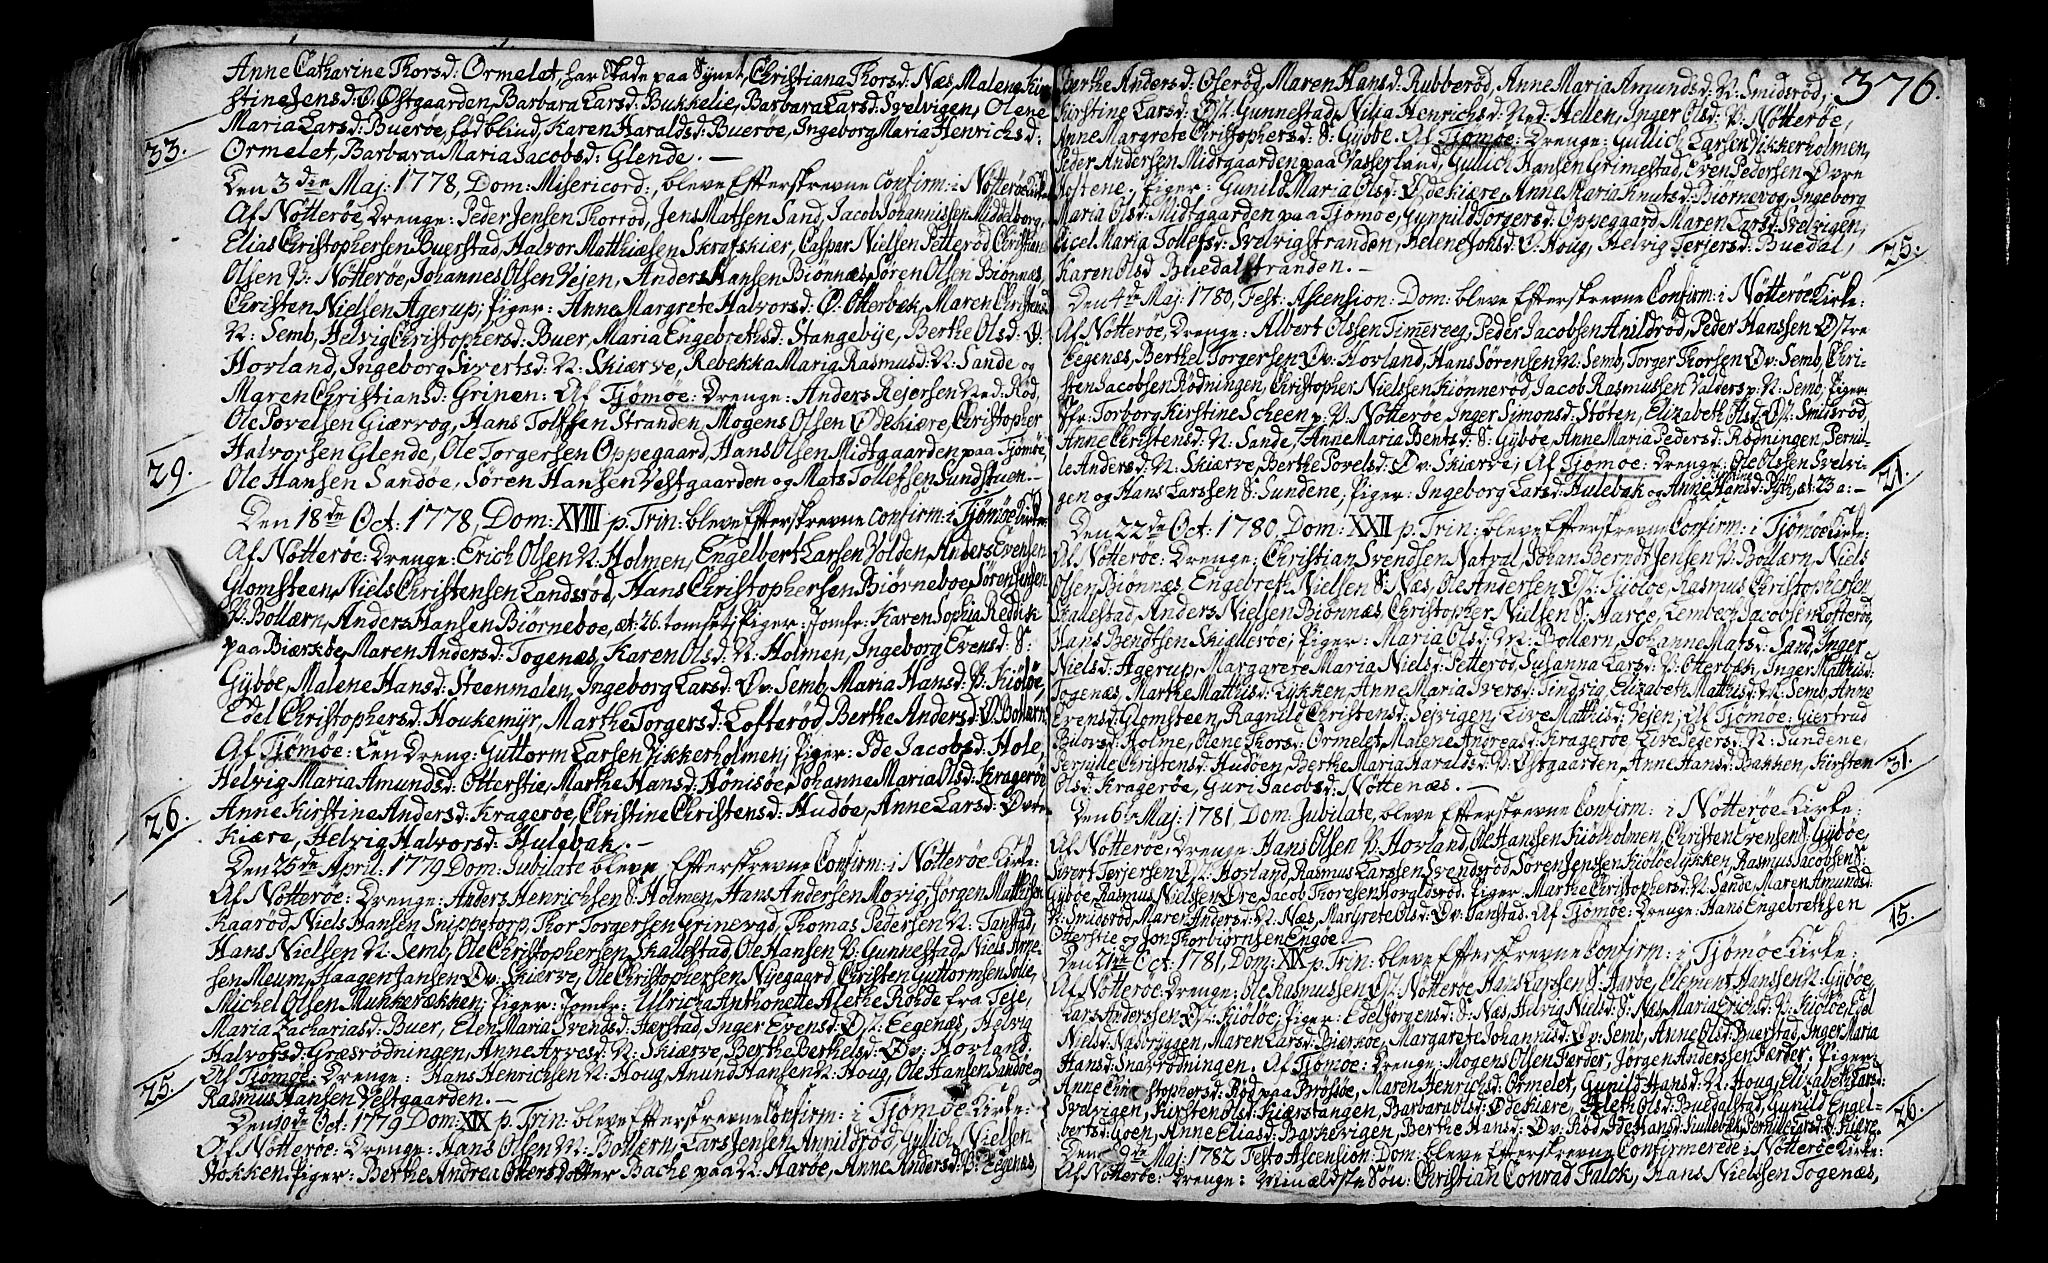 Anne Catharine Thorsd: Ormelet, har skade paa Synet, Christiana Thorsd: Næs, Malene Kir-
stine Jensd: Ø: Østgaarden, Barbara Larsd: Bukkelie, Barbara Larsd: Svelvigen, Olene
Maria Larsd: Buerøe, fød blind, Karen Haraldsd: Buerøe, Ingeborg Maria Henrichsd:
33.
Ormelet, Barbara Maria Jacobsd: Glende. —
Den 3die Maj: 1778, Dom: Misericord:, bleve Effterskrevne Confirm: i Nötterøe Kirke
Af Nötterøe Drenge: Peder Jensen Thorröd, Jens Matsen Sand, Jacob Johannissen Middaborg,
Elias Christophersen Buerstad, Halvor Matthiæsen Skrafskiær, Caspar Nielsen Petteröd, Christian
Olsen V: Nötterøe, Johannes Olsen Vejen, Anders Hansen Bionnæs, Sören Olsen Bionnæs,
Christen Nielsen Agerup; Piger: Anne Margrete Halvorsd: Ø: Otterbek, Maren Christensd:
N: Semb, Helvig Christophersd: Buer, Maria Engebrethsd: Stangebÿe, Berthe Olsd: Ø:
Horland, Ingeborg Sivertsd: N: Skiærve, Rebekka Maria Rasmusd: N: Sande og
Maren Christiansd: Grinen: Af Tjömøe: Drenge: Anders Rejersen Ned: Röd,
Ole Povelsen Giærvog, Hans Tolfsen Stranden, Mogens Olsen Ødekiære, Christopher
Halvorsen Glende, Ole Torgersen Oppegaard, Hans Olsen Midtgaarden paa Tjömöe,
29.
Ole Hansen Sandöe, Sören Hansen Vestgaarden og Mats Tollefsen Sundstuen. —
Den 18de Oct: 1778, Dom: XVIII p. Trin: bleve Effterskrevne Confirm: i Tjömøe Kirke:
Af Nötterøe: Drenge: Erich Olsen N: Holmen, Engelbert Larsen Volden, Anders Evensen
Glomsteen, Niels Christensen Landsröd, Hans Christophersen Biörneboe, Sören Jensen
V: Bollærn, Anders Hansen Biörneboe, æt: 26. tomset; Piger: Jomfr: Karen Sophia Reddik
paa Biærköe, Maren Andersd: Togenæs, Karen Olsd: N: Holmen, Ingeborg Evensd: S:
Gÿböe, Malene Hansd: Steenmalen, Ingeborg Larsd: Øv: Semb, Maria Hansd: V: Kiölöe,
Edel Christophersd: Houkemÿr, Marthe Torgersd: Lofteröd, Berthe Andersd: V: Bollærn
Af Tjömøe: Een Dreng: Guttorm Larsen Vikkerholmen; Piger: Ide Jacobsd: Hole,
Helvig Maria Amundsd: Otterstie, Marthe Hansd: Hönisöe, Johanne Maria Olsd: Krageröe
26.
Anne Kirstine Andersd: Krageröe, Christine Christensd: Hudöe, Anne Larsd: Øvre
Kiære, Helvig Halvorsd: Hulebak. —
Den 25de April: 1779 Dom: Jubilate bleve Effterskrevne Confirm: i Nötterøe Kirke:
Af Nötterøe: Drenge: Anders Henrichsen S: Holmen, Hans Andersen Movig, Jörgen Matthisen
Kaaröd, Niels Hansen Snippetorp, Thor Torgersen Grinevgd, Thomas Pedersen N: Tanstad,
Hans Nielsen N: Semb, Ole Christophersen Skallestad, Ole Hansen V: Gunnestad, Niels Arne-
sen Meum, Haagen Jansen Øv: Skiærve, Ole Christophersen Nÿegaard, Christen Guttormsen Jolie,
Michel Olsen Munkerækken; Piger: Jomfr: Ulricha Anthonette Alethe Rohde fra Teje,
Maria Zachariasd: Buer, Elen Maria Svendsd: Hærstad, Inger Evensd: Øst: Eegenæs, Helvig
Halvorsd: Græsrödningen, Anne Arvesd: N: Skiærve, Berthe Berthelsd: Øv: Hovland
Af Tjömøe: Drenge: Hans Henrichsen N: Houg, Anund Hansen N: Houg, Ole Hansen Sandöe og
25.
Rasmus Hansen Vestgaarden. —
Den 10de Oct: 1779 Dom: XIX p. Trin: bleve Effterskrevne Confirm: i Tjömøe Kirke:
Af Nötterøe: Drenge: Hans Olsen N: Bollærn, Lars Jensen Annildröd, Gullich Nielsen
Stokken. Piger: Berthe Andrea Ottersdotter Bache paa N: Aaröe, Anne Andersd: V: Eegenæs,
376.
Berthe Andersd: Oseröd, Maren Hansd: Rubberöd, Anne Maria Amundsd: N: Smidsröd,
Kirstine Larsd: Øst: Gunnestad, Nilia Henrichsd: Ned: Hellen, Inger Olsd: V: Nötterøe,
Anne Margrete Christophersd: S: Gÿböe. Af Tjömøe: Drenge: Gullich Larsen Vikkerholmen,
Peder Andersen Midtgaarden paa Vasserland, Gullich Hansen Grimestad, Even Pedersen Øvre
Jostene. Piger: Gunild Maria Olsd: Ødekiære, Anne Maria Knutsd: Biörnevog, Ingeborg
Maria Olsd: Midtgaarden paa Tjömøe, Gunnild Torgersd: Oppegaard, Maren Larsd: Svelvigen,
Sicel Maria Tollefsd: Svelvigstranden, Helene Johsd: Ø: Houg, Helvig Terjersd: Buedal,
25.
Karen Olsd Buedalstranden. —
Den 4de Maj: 1780, Fest: Ascension: Dom: bleve Effterskrevne Confirm: i Nötterøe Kirke:
Af Nötterøe, Drenge: Albert Olssen Timmereeg, Peder Jacobsen Anildröd, Peder Hanssen Østre
Eegenæs, Berthel Torgersen Øv: Hovland, Hans Sörensen N: Semb, Torger Thorsen Øv: Semb, Chri-
sten Jacobsen Rödningen, Christopher Nielssen Kiönneröd, Jacob Rasmussen Valders p: N: Semb; Piger
Sfr: Torborg Kirstine Scheen p: V: Nötterøe Inger Simonsd: Stöten, Elizabeth Olsd: Øst: Smidsröd,
Anne Christensd: N: Sande, Anne Maria Bentsd: S: Gÿböe, Anne Maria Pedersd: Rödningen, Pernil-
le Andersd: N: Skiærve, Berthe Povelsd: Øv: Skiærve; Af Tjömøe: Drenge: Ole Olssen Svelvi-
21.
gen og Hans Larssen S: Sundene, Piger: Ingeborg Larsd: Hulebak og Anne Hansd: Pÿth, æt: 23 a: —
Den 22de Oct: 1780, Dom: XXII p. Trin: bleve Effterskrevne Confirm: i Tjömøe Kirke:
Af Nötterøe: Drenge: Christian Svendsen Natval, Johan Berndt Jensen V: Bollærn, Niels
Olsen Bionnæs, Engebreth Nielsen S: Næs, Ole Andersen Øst: Kiölöe, Rasmus Christophersen
Skallestad, Anders Nielsen Bionnæs, Christopher Nielsen S: Aaröe, Lembech Jacobsen Lofteröd,
Hans Bendtsen Skiælleröe; Piger: Maria Olsd: N: Bollærn, Johanne Matsd: Sand, Inger
Nielsd: Agerup, Margarete Maria Nielsd: Petteröd, Susanna Larsd: V: Otterbek, Inger Matthisd:
Togenæs, Marthe Matthisd: Lÿkken, Anne Maria Iversd: Tindvig, Elizabeth Mathisd: N: Semb, Anne
Evensd: Glomsteen, Ragnild Christensd: Sejvigen, Live Matthisd: Vejen; Af Tjömøe: Giertrud
Bilovsd: Holme, Olene Thorsd: Ormelet, Malene Andreasd: Krageröe, Live Pedersd: N: Sundene,
Pernille Christensd: Hudöen, Berthe Maria Haraldsd: V: Østgaarden, Anne Hansd: Bakken, Kirsten
31.
Olsd: Krageröe, Guri Jacobsd: Nöttenæs. —
Den 6te Maj: 1781, Dom: Jubilate, bleve Effterskrevne Confirm: i Nötterøe Kirke:
Af Nötterøe: Drenge: Hans Olsen V: Hovland, Ole Hansen Kiölholmen, Christen Evensen S: Gÿböe,
Sivert Terjersen Øst: Hovland, Rasmus Larssen Svendsröd, Sören Jenssen Kiölöe Lÿkken, Rasmus Jacobsen S:
Gÿböe, Rasmus Nielssen Øre, Jacob Thoresen Horgaldsröd. Piger: Marthe Christophersd: N: Sande, Maren Amundsd:
N: Smidsröd, Maren Andersd: N: Næs, Margrete Olsd: Øv: Tanstad. Af Tjömøe: Drenge: Hans Engebrethsen
15.
Otterstie og Jon Thorbiörnsen Engöe.
Den 21de Oct: 1781, Dom: XIX p. Trin: bleve Effterskrevne Confirm: i Tjömøe Kirke:
Af Nötterøe: Drenge: Ole Rasmussen Øst: Nötterøe, Hans Larssen S: Aaröe, Clement Hanssen N: Gÿböe,
Lars Anderssen Øst: Kiölöe; Piger: Edel Jorgensd: S: Næs, Helvig Nielsd: S: Næs, Maria Erichsd: V: Kiölöe, Edel
Nielsd: Næsbryggen, Maren Larsd: Biærköe, Margarete Johannisd: Øv: Semb, Anne Olsd: Buerstad, Inger Maria
Hansd: Snarrödningen. Af Tjömøe: Drenge: Mogens Olsen Færder, Jörgen Anderssen Færder. Piger:
Anne Christophersd: Röd paa Brösöe, Maren Henrichsd: Ormelet, Gunild Hansd: N: Houg, Elizabeth Larsd:
Svelvigen, Kirsten Olsd: Kiærstangen, Barbara Olsd: Ødekiære, Aleth Olsd: Buedalstad, Gunild Engel-
26.
bertsd: Goen, Anne Eliasd: Barkevigen, Berthe Hansd: Øv: Röd, Ide Hansd: Hulebak, Pernille Larsd: V: Kiære.
Den 9de Maj: 1782 Festo Ascension: Dom: bleve Effterskrevne Confirmerede i Nötterøe Kirke:
Af Nötterøe: Drenge: Min ældste Sön: Christian Conrad Falck, Hans Nielssen Togenæs,